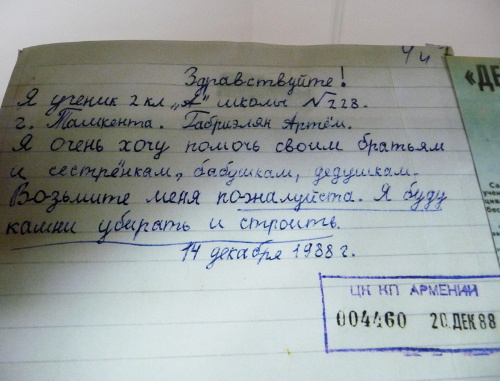 Здравствуйте!
Я ученик 2 кл „А" школы N 228.
г. Ташкента. Габриэлян Артём.
Я очень хочу помочь своим братьям
и сестрёнкам, бабушкам, дедушкам.
Возьмите меня пожалуйста. Я буду
камни убирать и строить.
14 декабря 1988 г.
ЦК КП АРМЕНИИ
004460 20. ДЕК 88
«ДЕ